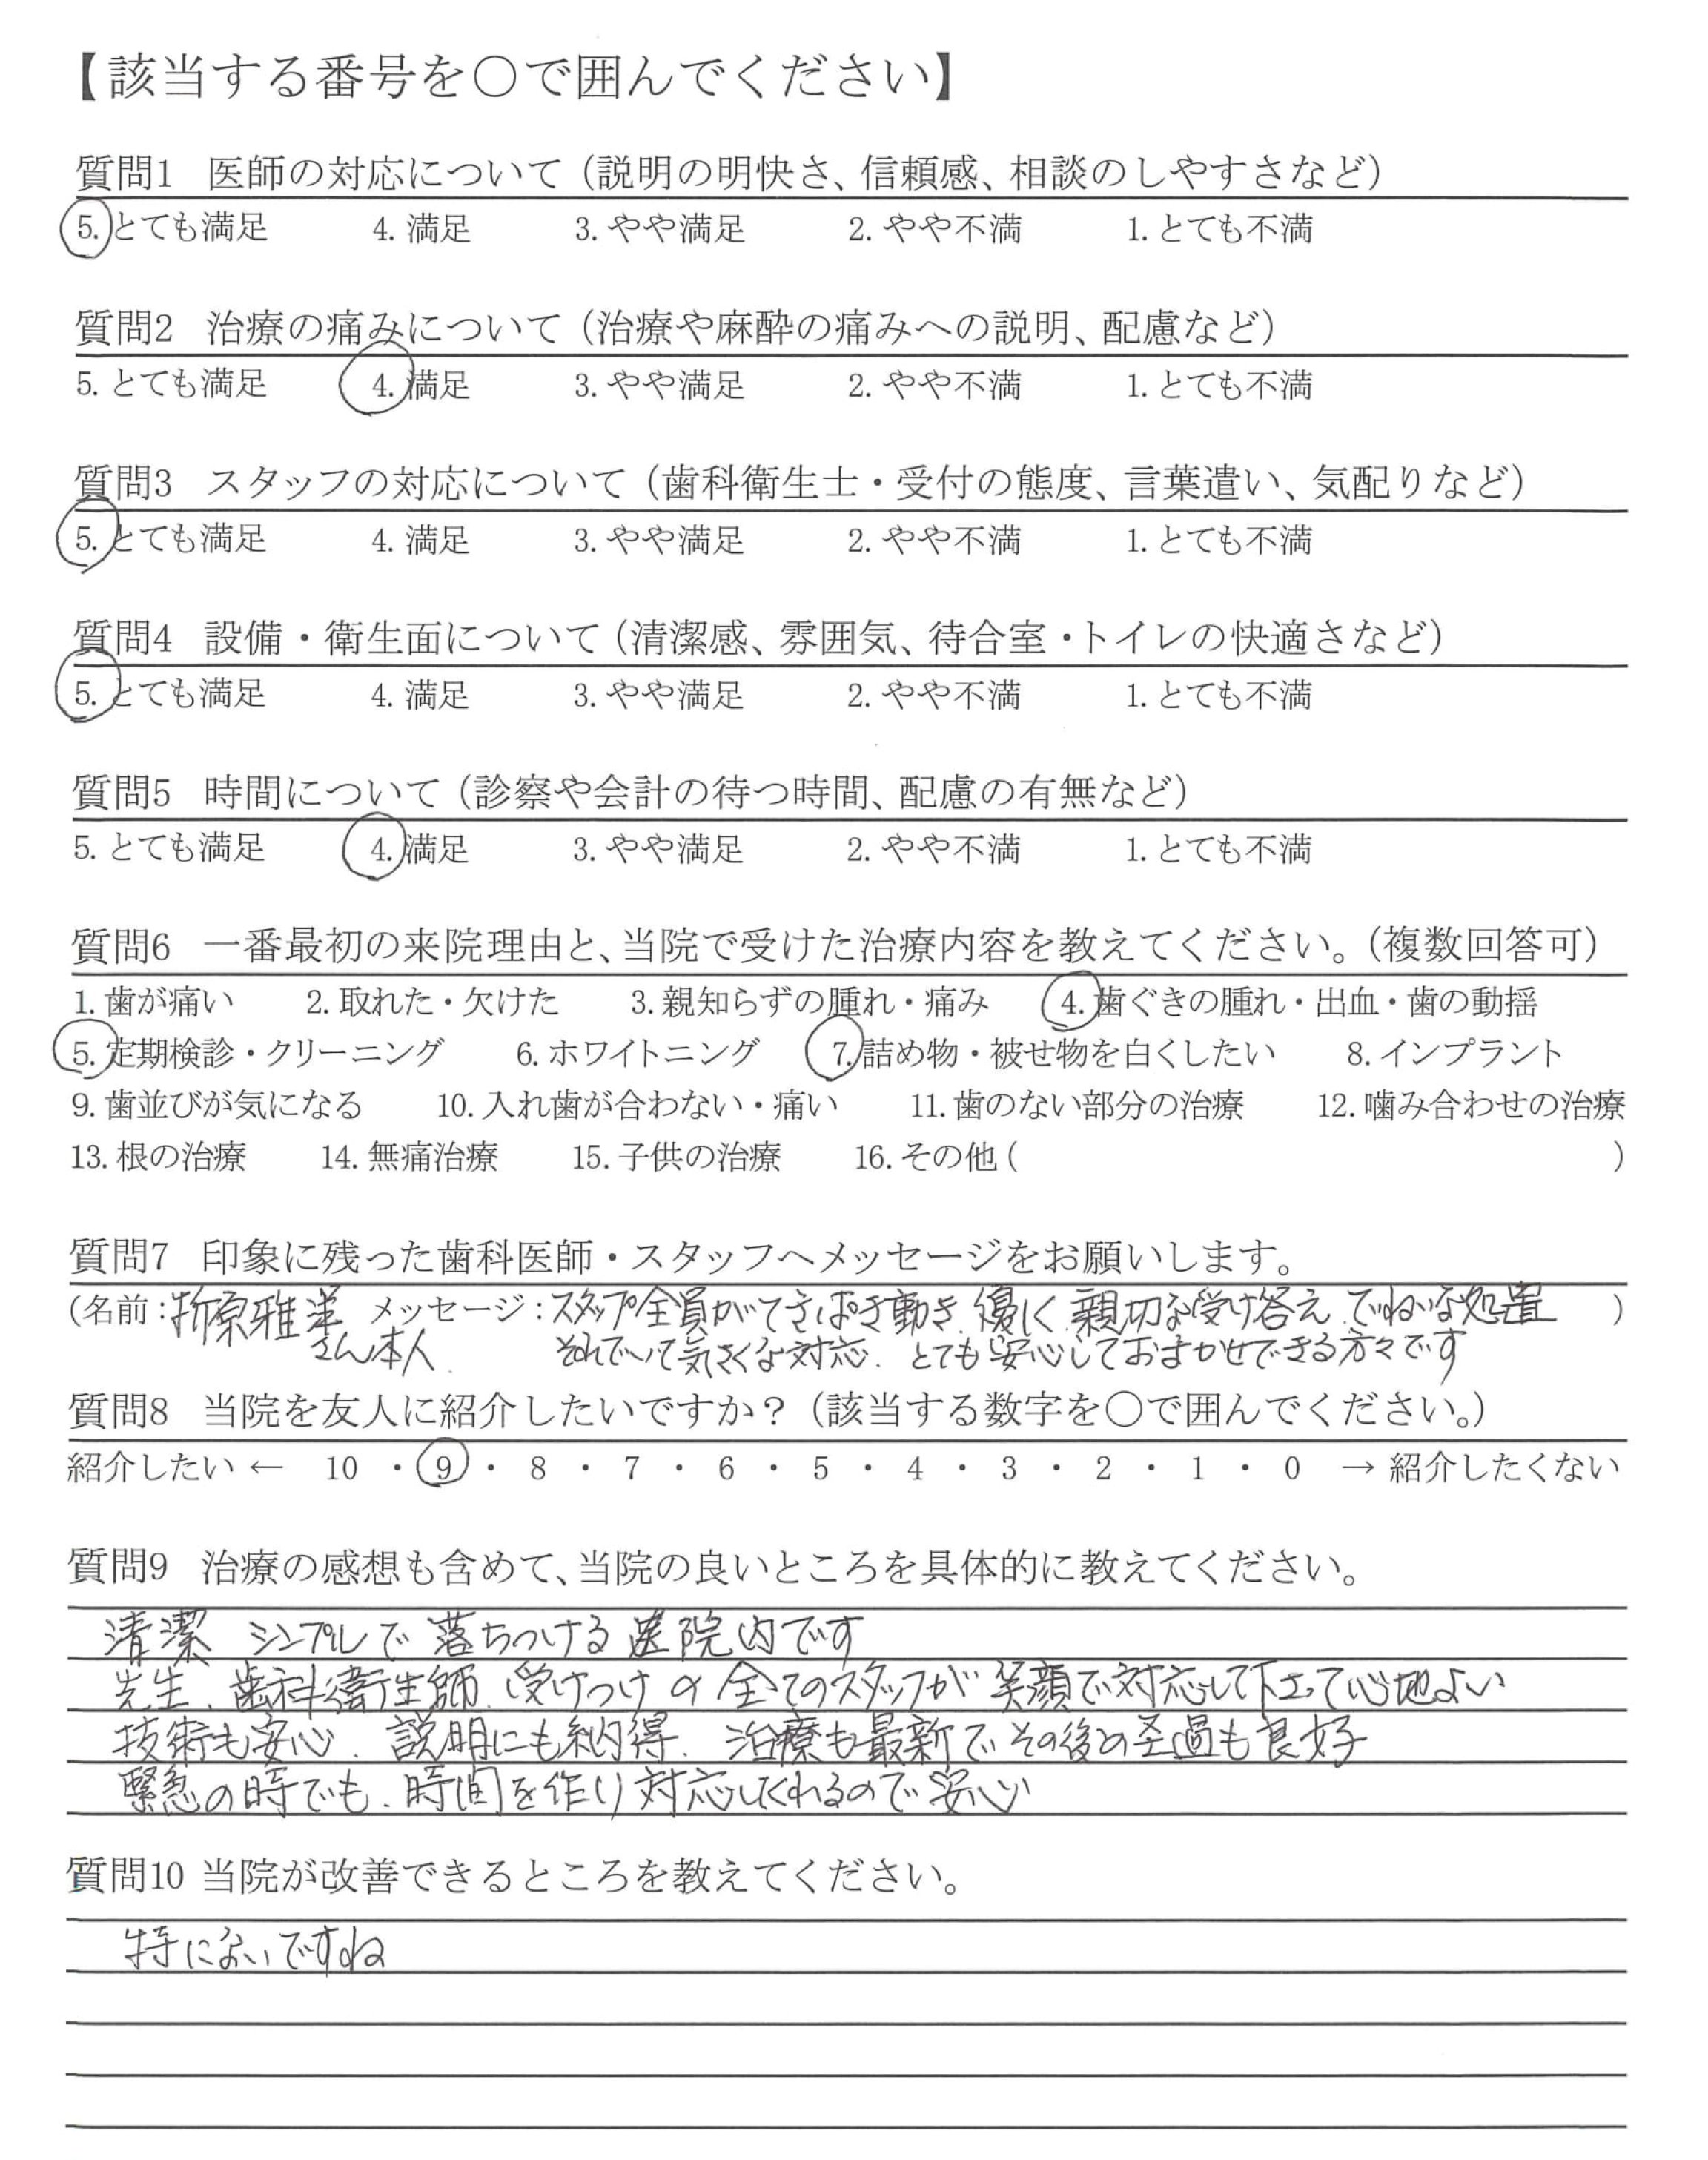 【該当する番号を○で囲んでください】
質問1 医師の対応について（説明の明快さ、信頼感、相談のしやすさなど）
5. とても満足 4. 満足 3. やや満足 2. やや不満 1. とても不満
質問2 治療の痛みについて（治療や麻酔の痛みへの説明、配慮など）
5. とても満足 4. 満足 3. やや満足 2. やや不満 1. とても不満
質問3 スタッフの対応について（歯科衛生士・受付の態度、言葉遣い、気配りなど）
5. とても満足 4. 満足 3. やや満足 2. やや不満 1. とても不満
質問4 設備・衛生面について（清潔感、雰囲気、待合室・トイレの快適さなど）
5. とても満足 4. 満足 3. やや満足 2. やや不満 1. とても不満
質問5 時間について（診察や会計の待つ時間、配慮の有無など）
5. とても満足 4. 満足 3. やや満足 2. やや不満 1. とても不満
質問6 一番最初の来院理由と、当院で受けた治療内容を教えてください。（複数回答可）
1. 歯が痛い 2. 取れた・欠けた 3. 親知らずの腫れ・痛み 4. 歯ぐきの腫れ・出血・歯の動揺
5. 定期検診・クリーニング 6. ホワイトニング 7. 詰め物・被せ物を白くしたい 8. インプラント
9. 歯並びが気になる 10. 入れ歯が合わない・痛い 11. 歯のない部分の治療 12. 噛み合わせの治療
13. 根の治療 14. 無痛治療 15. 子供の治療 16. その他 ( )
質問7 印象に残った歯科医師・スタッフへメッセージをお願いします。
(名前：折原雅洋 メッセージ：スタッフ全員がてきぱき動き、優しく、親切な受け答え、ていねいな処置 )
さん本人 それでいて気さくな対応、とても安心しておまかせできる方々です
質問8 当院を友人に紹介したいですか？（該当する数字を○で囲んでください。）
紹介したい ← 10 ・ 9 ・ 8 ・ 7 ・ 6 ・ 5 ・ 4 ・ 3 ・ 2 ・ 1 ・ 0 → 紹介したくない
質問9 治療の感想も含めて、当院の良いところを具体的に教えてください。
清潔 シンプルで 落ちつける 医院内です
先生、歯科衛生師、受けつけの全てのスタッフが 笑顔で対応して下さって心地よい
技術も安心、説明にも納得、治療も最新で その後の経過も良好
緊急の時でも、時間を作り対応してくれるので安心
質問10 当院が改善できるところを教えてください。
特にないですね